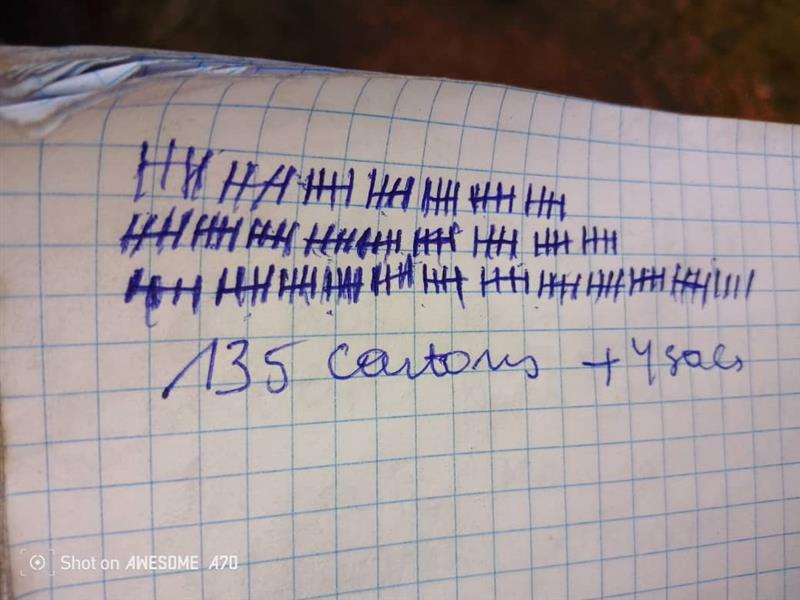 135 cartons + 4 sacs
Shot on AWESOME A70